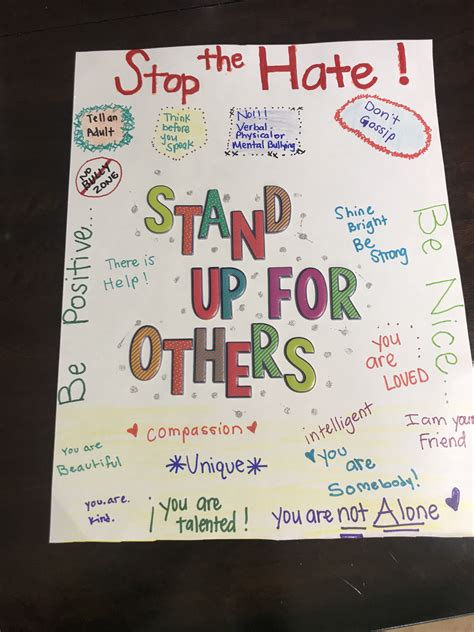 Stop the Hate!
Tell an
Adult
Think
before
you
Speak
No!!!
Verbal
Physical or
Mental Bullying
Don't
Gossip
NO
BULLY
ZONE
Be Positive...
Be Nice...
STAND
UP FOR
OTHERS
Shine
Bright
Be
Strong
There is
Help!
you
are
LOVED
compassion
intelligent
I am your
Friend
you are
Beautiful
*Unique*
you
are
Somebody!
you.are.
kind.
¡you are
talented!
you are not Alone